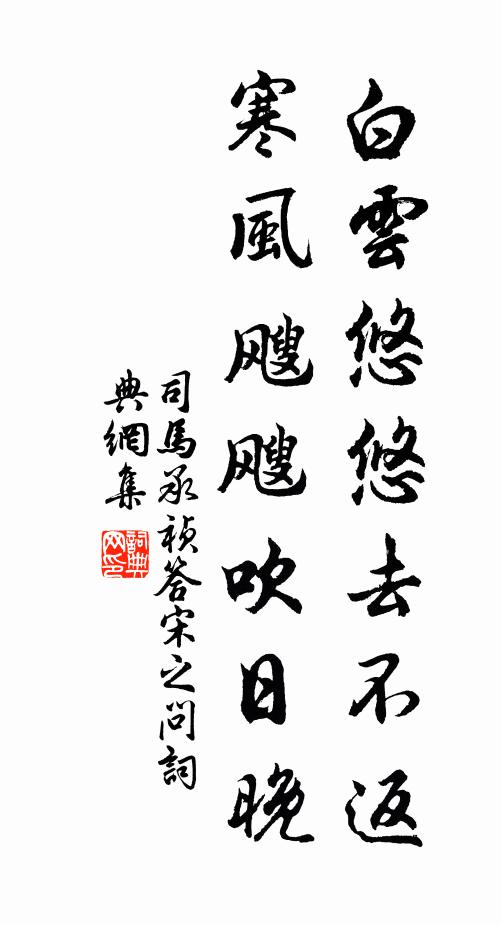 白雲悠悠去不返
寒風飕飕吹日晚
司馬承禎答宋之问詞
典網集
詞典
网印